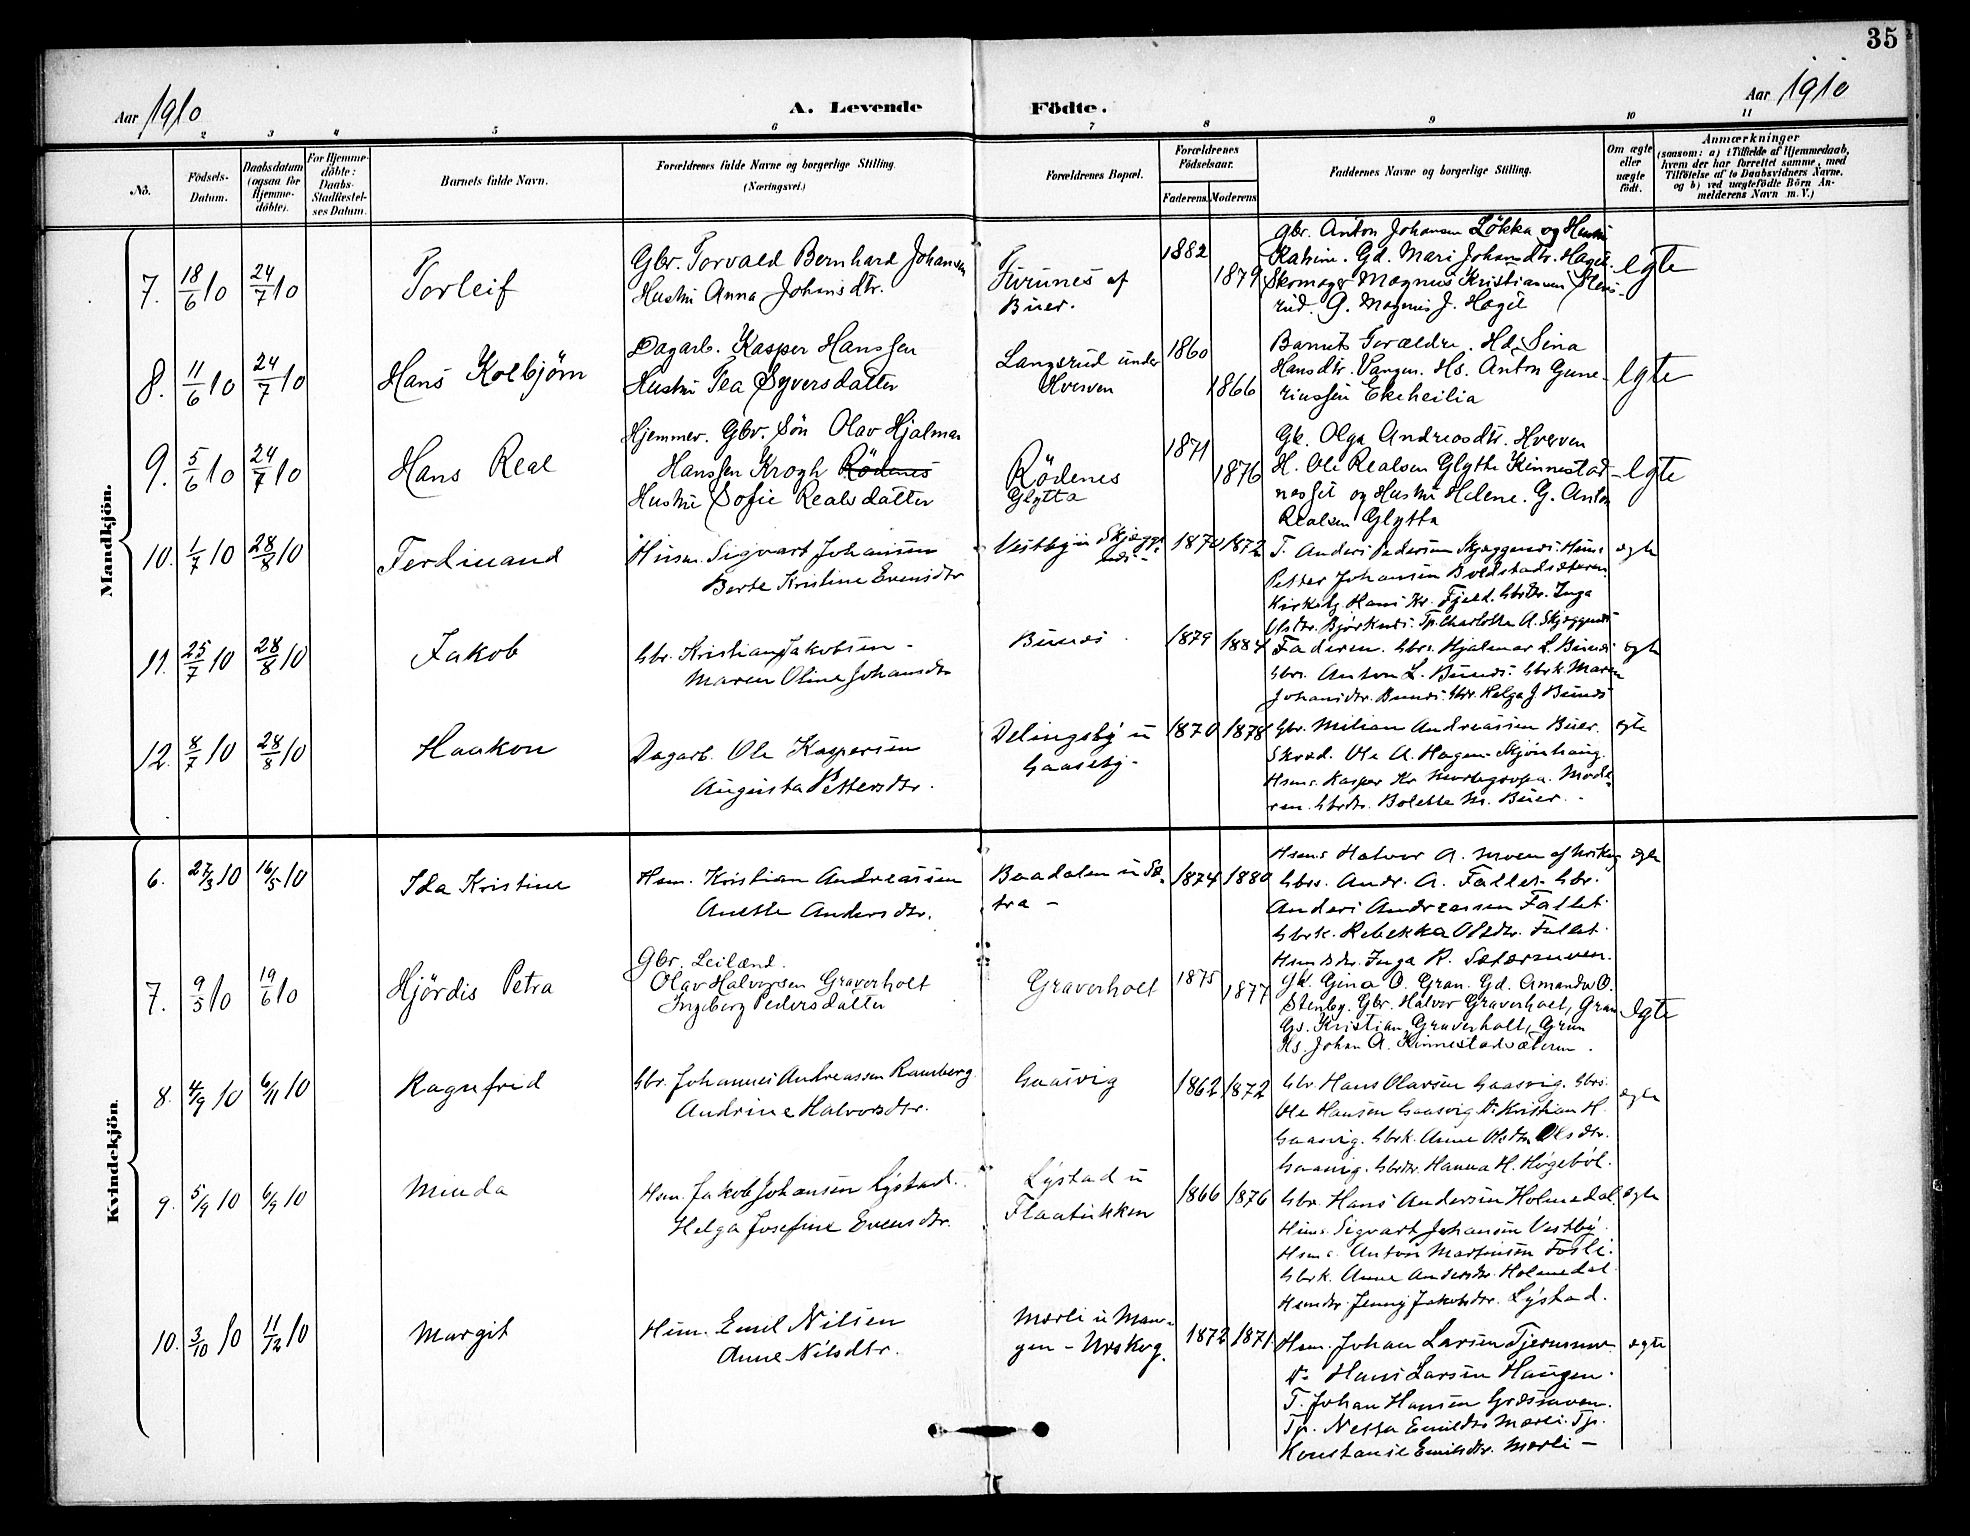 35
Aar 1910
A. Levende Födte.
Aar 1910
2 3 4 5 6 7 8 9 10 11
No.
Födsels-Datum.
Daabsdatum (ogsaa for Hjemme-döbte).
For Hjemme-döbte: Daabs-Stadfæstel-ses Datum.
Barnets fulde Navn.
Forældrenes fulde Navne og borgerlige Stilling. (Næringsvei.)
Forældrenes Bopæl.
Forældrenes Födselsaar.
Faderens. Moderens.
Faddernes Navne og borgerlige Stilling.
Om ægte eller uægte födt.
Anmærkninger
(saasom: a) i Tilfælde af Hjemmedaab,
hvem der har forrettet samme, med
Tilföielse af to Daabsvidners Navne,
og b) ved uægtefödte Börn An-
melderens Navn m. V.)
Mandkjön.
7. 18/6 10 24/7 10 Torleif
Gbr. Torvald Bernhard Johansen
Hustru Anna Johansdtr.
Furunes af
Buer.
1882 1879
Gbr. Anton Johansen Lökka og Hustru
Katrine. Gd. Mari Johansdtr. Hagil.
Skomager Magnus Kristiansen Stens-
rud. G. Magnus J. Hagil
Egte
8. 11/6 10 24/7 10 Hans Kolbjörn
Dagarb. Kasper Hanssen
Hustru Tea Syversdatter
Langsrud under
Hverven
1860 1866
Barnets Forældre. Hd. Sina
Hansdtr. Vangen. Hs. Anton Gune-
riussen Ekeheilia
Egte
9. 5/6 10 24/7 10 Hans Real
Hjemmev. Gbr. Sön Olav Hjalmar
Hanssen Krogh Rödenes
Hustru Sofie Realsdatter
Rödenes
Glytta
1871 1876
Gk. Olga Andreasdtr. Hverven
H. Ole Realsen Glytte Kinnestad-
og Hustru Helene. G. Anton
Realsen Glytta
Egte
10. 1/7 10 28/8 10 Ferdinand
Husm. Sigvart Johansen
Berte Kristine Evensdtr
Vestby u Skjægge-
næs-
1870 1872
T. Anders Pedersen Skjæggenæs. Hsms.
Petter Johansen Boldstadsæteren.
Kirketj. Hans Kr. Fjeld. Gbrdtr. Inga
Olsdtr. Björknes. Tp. Charlotte A. Skjæggenæs
egte
11. 25/7 10 28/8 10 Jakob
Gbr. Kristian Jakobsen-
Maren Oline Johansdtr
Bunæs.
1879 1884
Faderen. Gbrs. Hjalmar L. Bunæs
Gbrs. Anton L. Bunæs. Gbrk. Maren
Johansdtr. Bunæs. Gbr. Helga J. Bunæs
egte
12. 8/7 10 28/8 10 Haakon
Dagarb. Ole Kaspersen
Augusta Pettersdtr.
Delingsby u
Gaaseby-
1870 1878
Gbr. Milian Andreassen Buer.
Skræd. Ole A. Hagen-Skjönhaug.
Hsms. Kasper Kr. Mode-
ren. Gbrdtr. Bolette M. Buer.-
egte
Kvindekjön.
6. 27/3 10 16/5 10 Ida Kristine
Hsm. Kristian Andreassen
Anette Andersdtr.
Baadalen u Sæ-
tra-
1874 1880
Hsms Halvor A. Moen af Urskog
Gbrs. Andr. A. Fallet. Gbr.
Anders Andreassen Fallet.
Gbrk. Rebekka Olsdtr. Fallet.
Hsmdtr. Inga R. Sætermoen.
egte
7. 9/5 10 19/6 10 Hjördis Petra
Gbr. Leilænd.
Olav Halvorsen Graverholt
Ingeborg Pedersdatter
Graverholt
1875 1877
Gk. Gina O. Gran. Gd. Amanda O.
Stenby. Gbr. Halvor Graverholt, Gran
Gs. Kristian Graverholt, Gran
Hs. Johan A. Kinnestadsæteren.
Egte
8. 4/9 10 6/11 10 Ragnfrid
Gbr. Johannes Andreassen Ramberg.
Andrine Halvorsdtr.
Gaasvig
1862 1872
Gbr Hans Olavsen Gaasvig. Gbrs.
Ole Hansen Gaasvig Do Kristian H.
Gaasvig. Gbrk. Anne Olsdtr. Olsdtr.
Gaasvig. Gbrdtr. Hanna H. Högeböl.
egte
9. 5/9 10 6/9 10 Minda
Hsm. Jakob Johansen Lystad.
Helga Josefine Evensdtr.
Lystad u
Flaatukken
1866 1876
Gbr. Hans Andersen Holmedal.
Hsms. Sigvart Johansen Vestby.
Hsms. Anton Martinsen Fosli.
Gbrk. Anne Andersdtr. Holmedal
Hsmdtr. Jenny Jakobsdtr. Lystad.
egte
10. 3/10 10 11/12 10 Margit
Hsm. Emil Nilsen
Anne Nilsdtr.
Mærli u Man-
gen-Urskog.
1872 1871
Hsm. Johan Larsen Tjernsmo-
Do Hans Larsen Haugen.
T. Johan Hansen Græsmoen.
Tp. Netta Emilsdtr Mærli. Tp.
Konstanse Emilsdtr. Mærli-
egte